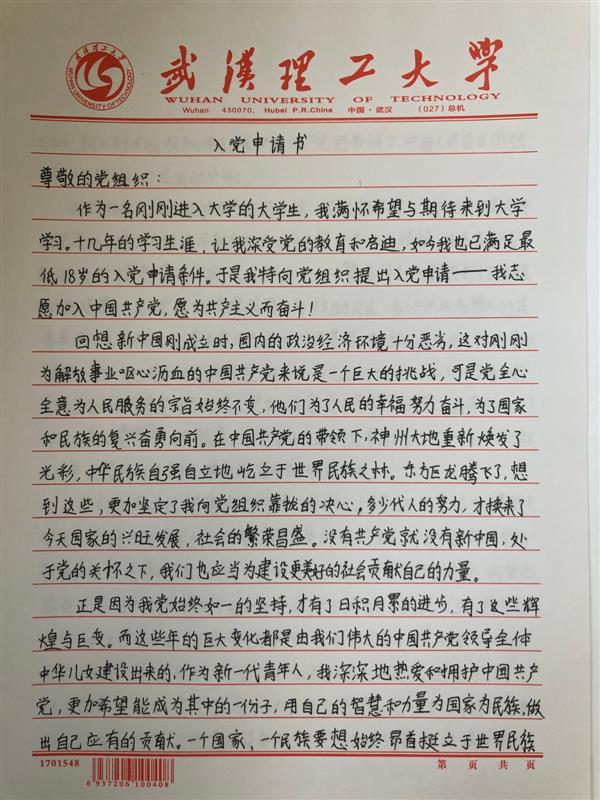 武汉理工大学
WUHAN UNIVERSITY OF TECHNOLOGY
武漢理工大学
WUHAN UNIVERSITY OF TECHNOLOGY
Wuhan 430070, Hubei P.R.China 中国·武汉 (027)总机
入党申请书
尊敬的党组织：
作为一名刚刚进入大学的大学生，我满怀希望与期待来到大学
学习。十几年的学习生涯，让我深受党的教育和启迪，如今我也已满足最
低18岁的入党申请条件。于是我特向党组织提出入党申请——我志
愿加入中国共产党，愿为共产主义而奋斗！
回想新中国刚成立时，国内的政治经济环境十分恶劣，这对刚刚
为解放事业呕心沥血的中国共产党来说是一个巨大的挑战，可是党全心
全意为人民服务的宗旨始终不变，他们为了人民的幸福努力奋斗，为了国家
和民族的复兴奋勇向前。在中国共产党的带领下，神州大地重新焕发了
光彩，中华民族自强自立地屹立于世界民族之林。东方巨龙腾飞了，想
到这些，更加坚定了我向党组织靠拢的决心，多少代人的努力，才换来了
今天国家的兴旺发展，社会的繁荣昌盛。没有共产党就没有新中国，处
于党的关怀之下，我们也应当为建设更美好的社会贡献自己的力量。
正是因为我党始终如一的坚持，才有了日积月累的进步，有了这些辉
煌与巨变。而这些年的巨大变化都是由我们伟大的中国共产党领导全体
中华儿女建设出来的，作为新一代青年人，我深深地热爱和拥护中国共产
党，更加希望能成为其中的一份子，用自己的智慧和力量为国家为民族，做
出自己应有的贡献。一个国家、一个民族要想始终昂首挺立于世界民族
1701548
6937206100408
第 页 共 页